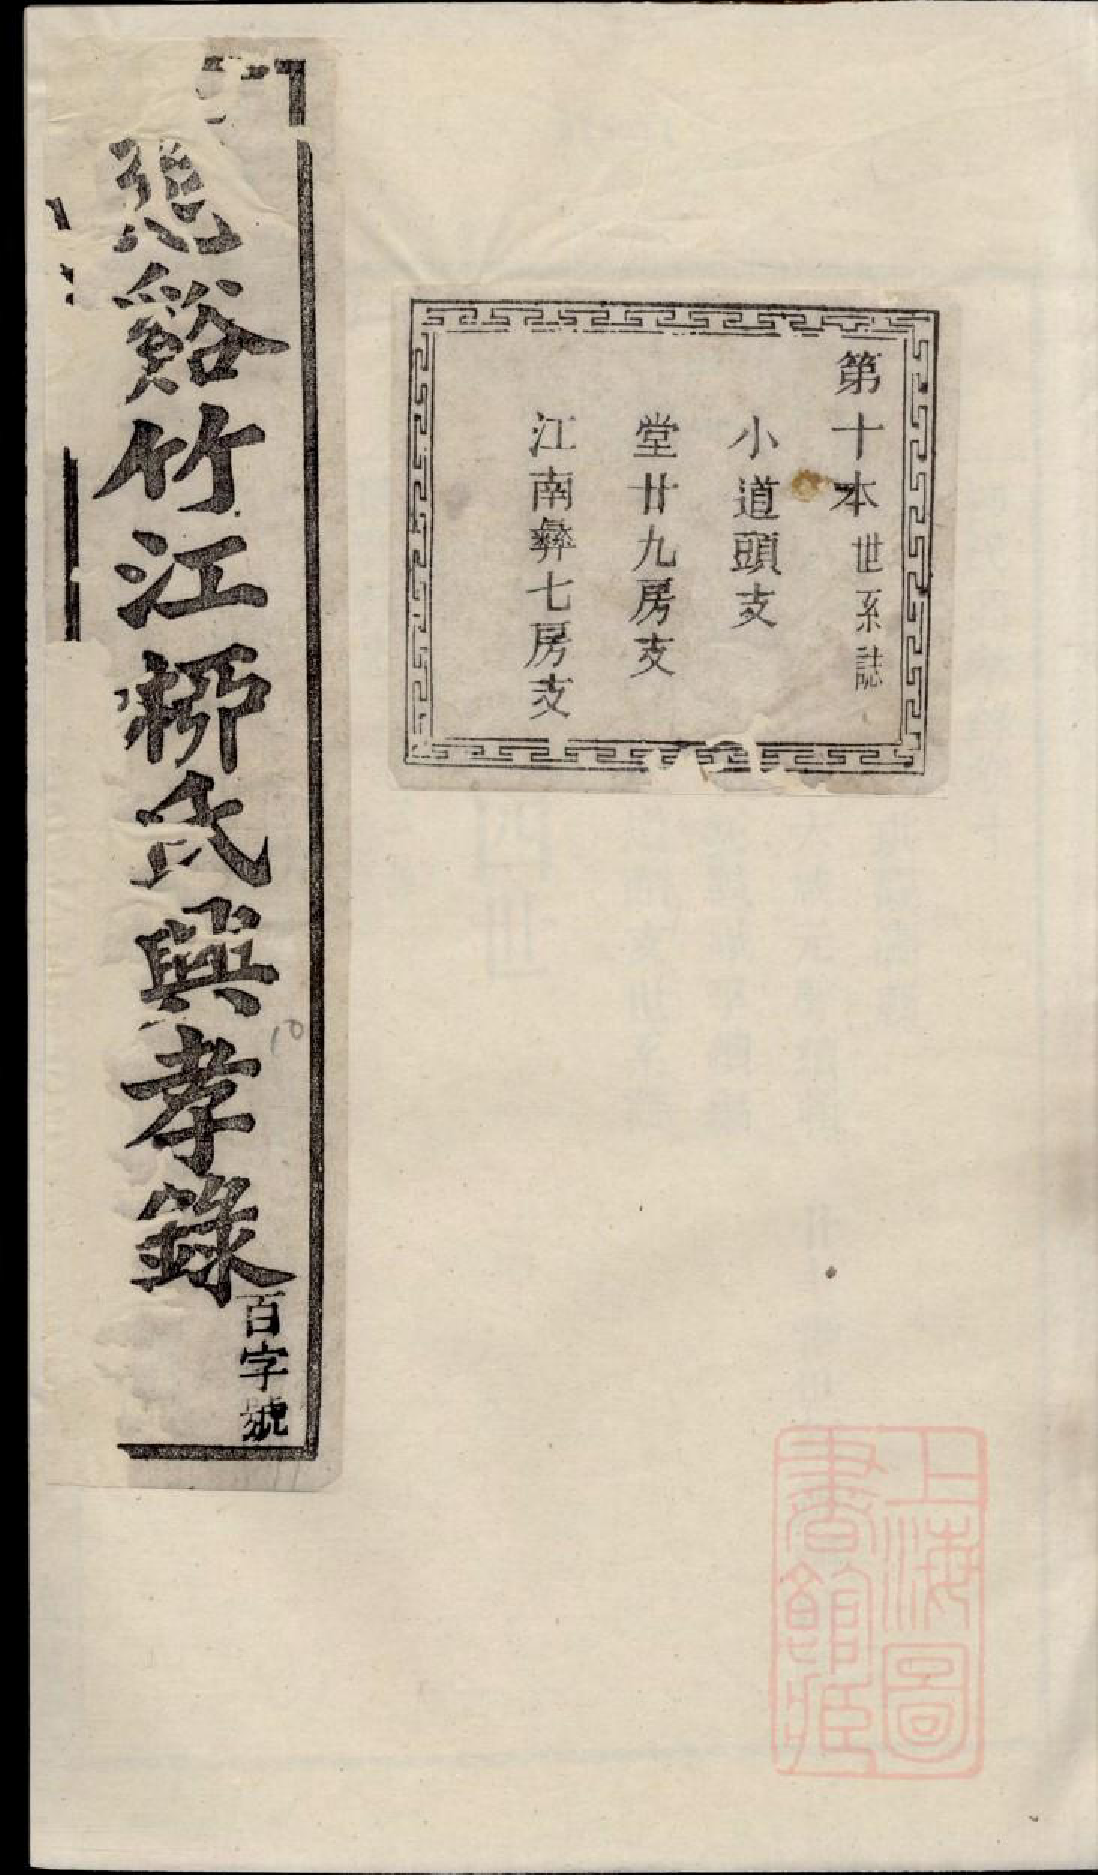 慈谿竹江栁氏興孝錄
百字號
10
第十本世系誌
小道頭支
堂廿九房支
江南彝七房支
上海圖
書館藏